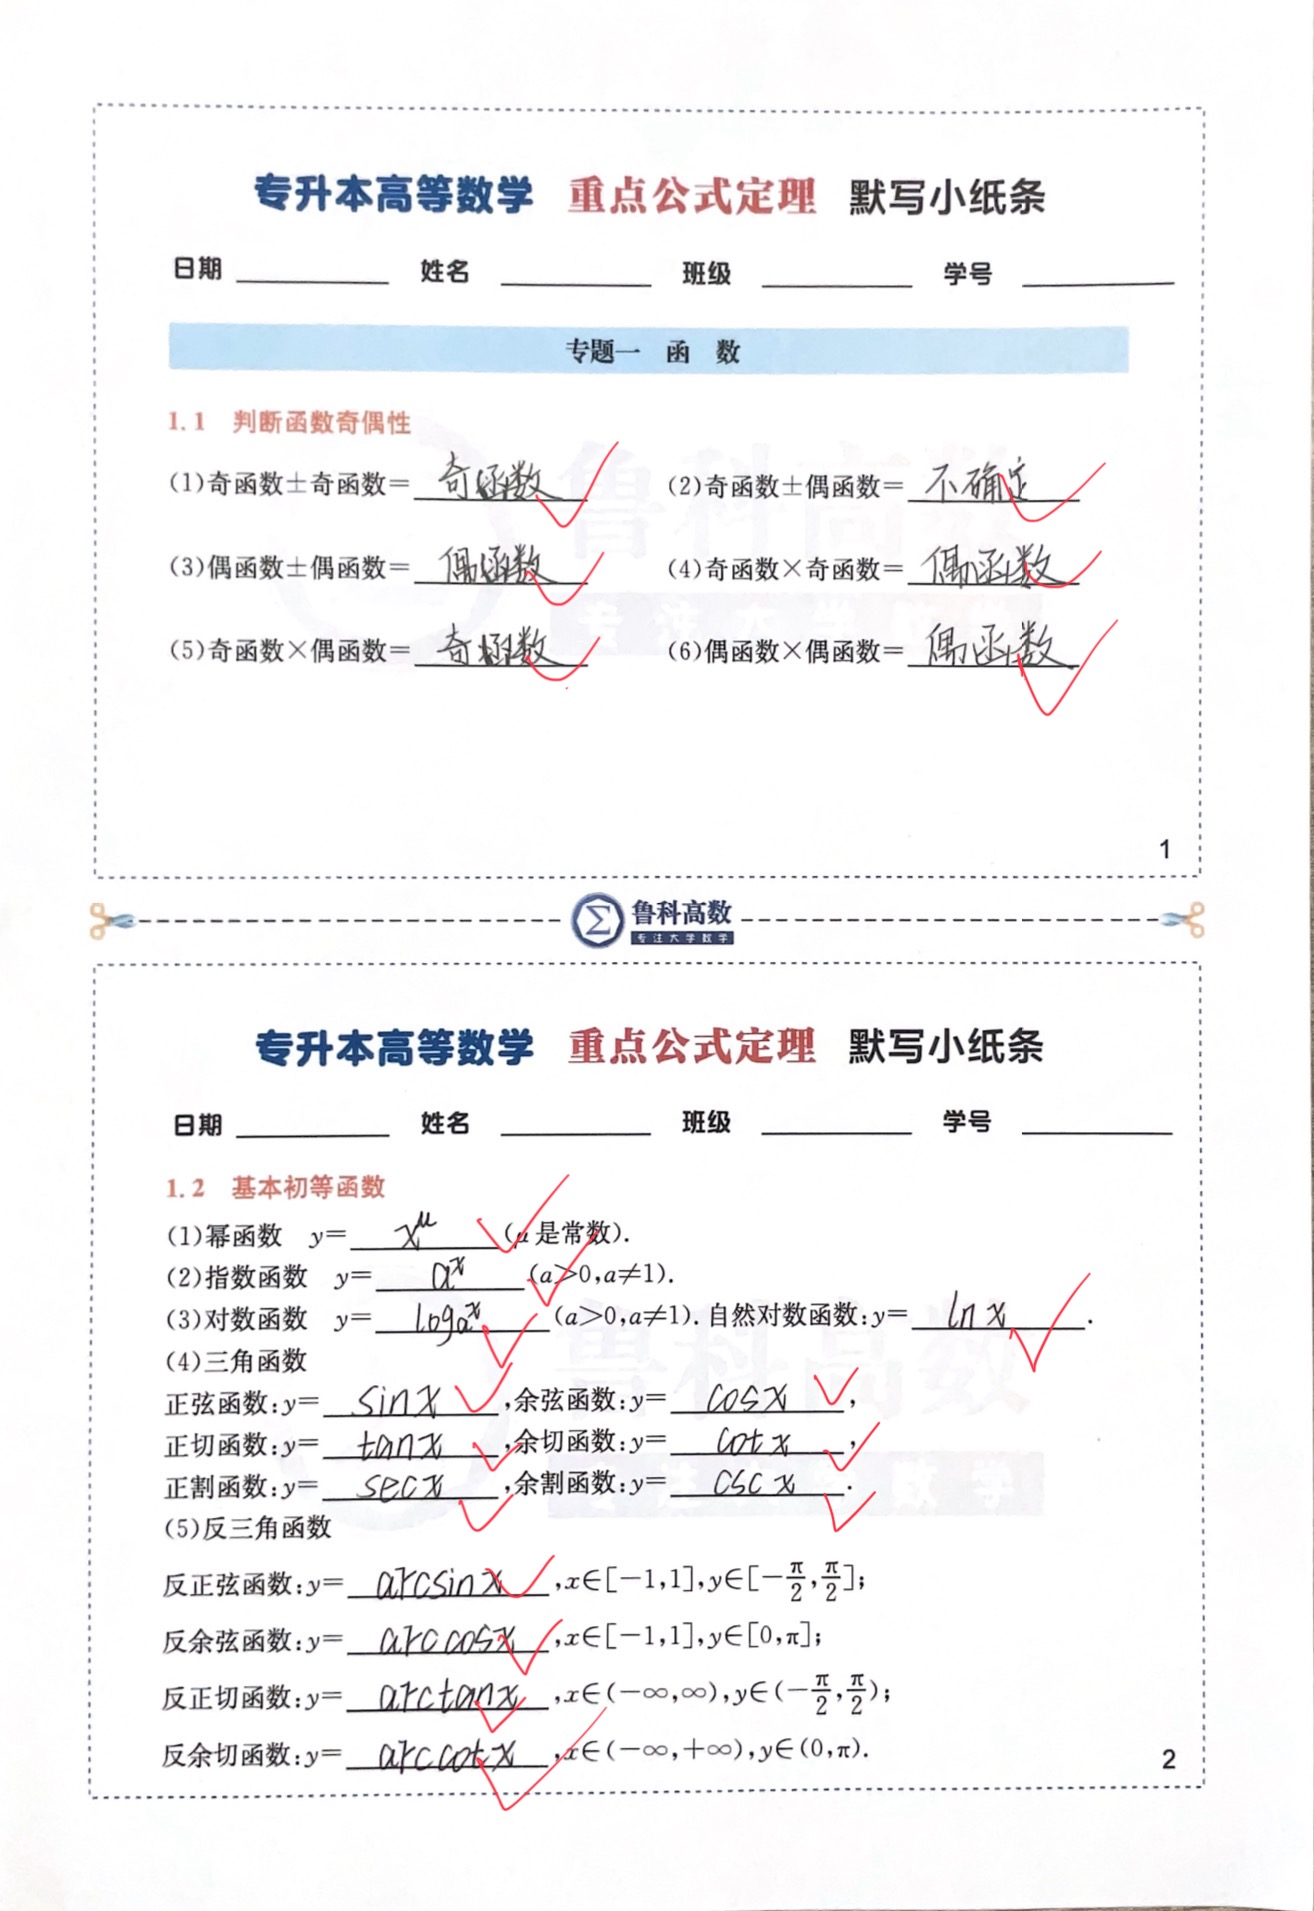 专升本高等数学 重点公式定理 默写小纸条
日期 姓名 班级 学号
专题一 函 数
1.1 判断函数奇偶性
(1)奇函数±奇函数= 奇函数 (2)奇函数±偶函数= 不确定
(3)偶函数±偶函数= 偶函数 (4)奇函数×奇函数= 偶函数
(5)奇函数×偶函数= 奇函数 (6)偶函数×偶函数= 偶函数
1
鲁科高数
专注大学数学
专升本高等数学 重点公式定理 默写小纸条
日期 姓名 班级 学号
1.2 基本初等函数
(1)幂函数 y= x^μ (μ是常数).
(2)指数函数 y= a^x (a>0,a≠1).
(3)对数函数 y= log_a^x (a>0,a≠1). 自然对数函数:y= ln x .
(4)三角函数
正弦函数:y= sin x ,余弦函数:y= cos x ,
正切函数:y= tan x ,余切函数:y= cot x ,
正割函数:y= sec x ,余割函数:y= csc x .
(5)反三角函数
反正弦函数:y= arcsin x ,x∈[-1,1],y∈[-π/2,π/2];
反余弦函数:y= arccos x ,x∈[-1,1],y∈[0,π];
反正切函数:y= arctan x ,x∈(-∞,∞),y∈(-π/2,π/2);
反余切函数:y= arccot x ,x∈(-∞,+∞),y∈(0,π).
2